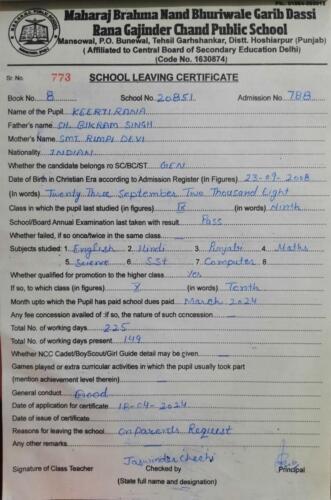 Maharaj Brahma Nand Bhuriwale Garib Dassi
Rana Gajinder Chand Public School
Mansowal, P.O. Bunewal, Tehsil Garhshankar, Distt. Hoshiarpur (Punjab)
(Affiliated to Central Board of Secondary Education Delhi)
(Code No. 1630874)
Sr. No. 773 SCHOOL LEAVING CERTIFICATE
Book No. 8 School No. 20851 Admission No. 788
Name of the Pupil KEERTI RANA
Father's name SH. BIKRAM SINGH
Mother's Name SMT. RIMPI DEVI
Nationality INDIAN
Whether the candidate belongs ro SC/BC/ST GEN
Date of Birth in Christian Era according to Admission Register (In Figures) 23-09-2008
(In words) Twenty Three September Two Thousand Eight
Class in which the pupil last studied (in figures) IX (in words) Ninth
School/Board Annual Examination last taken with result Pass
Whether failed, if so once/twice in the same class
Subjects studied: 1. English 2. Hindi 3. Punjabi 4. Maths
5. Science 6. SST 7. Computer 8
Whether qualified for promotion to the higher class Yes
If so, to which class (in figures) X (in words) Tenth
Month upto which the Pupil has paid school dues paid March 2024
Any fee concession availed of :if so, the nature of such concession
Total No. of working days 225
Total No. of working days present 149
Whether NCC Cadet/BoyScout/Girl Guide detail may be given
Games played or extra curricular activities in which the pupil usually took part
(mention achievement level therein)
General conduct Good
Date of application for certificate 18-04-2024
Date of issue of certificate
Reasons for leaving the school on Parents Request
Any other remarks
Signature of Class Teacher Checked by Principal
(State full name and designation)